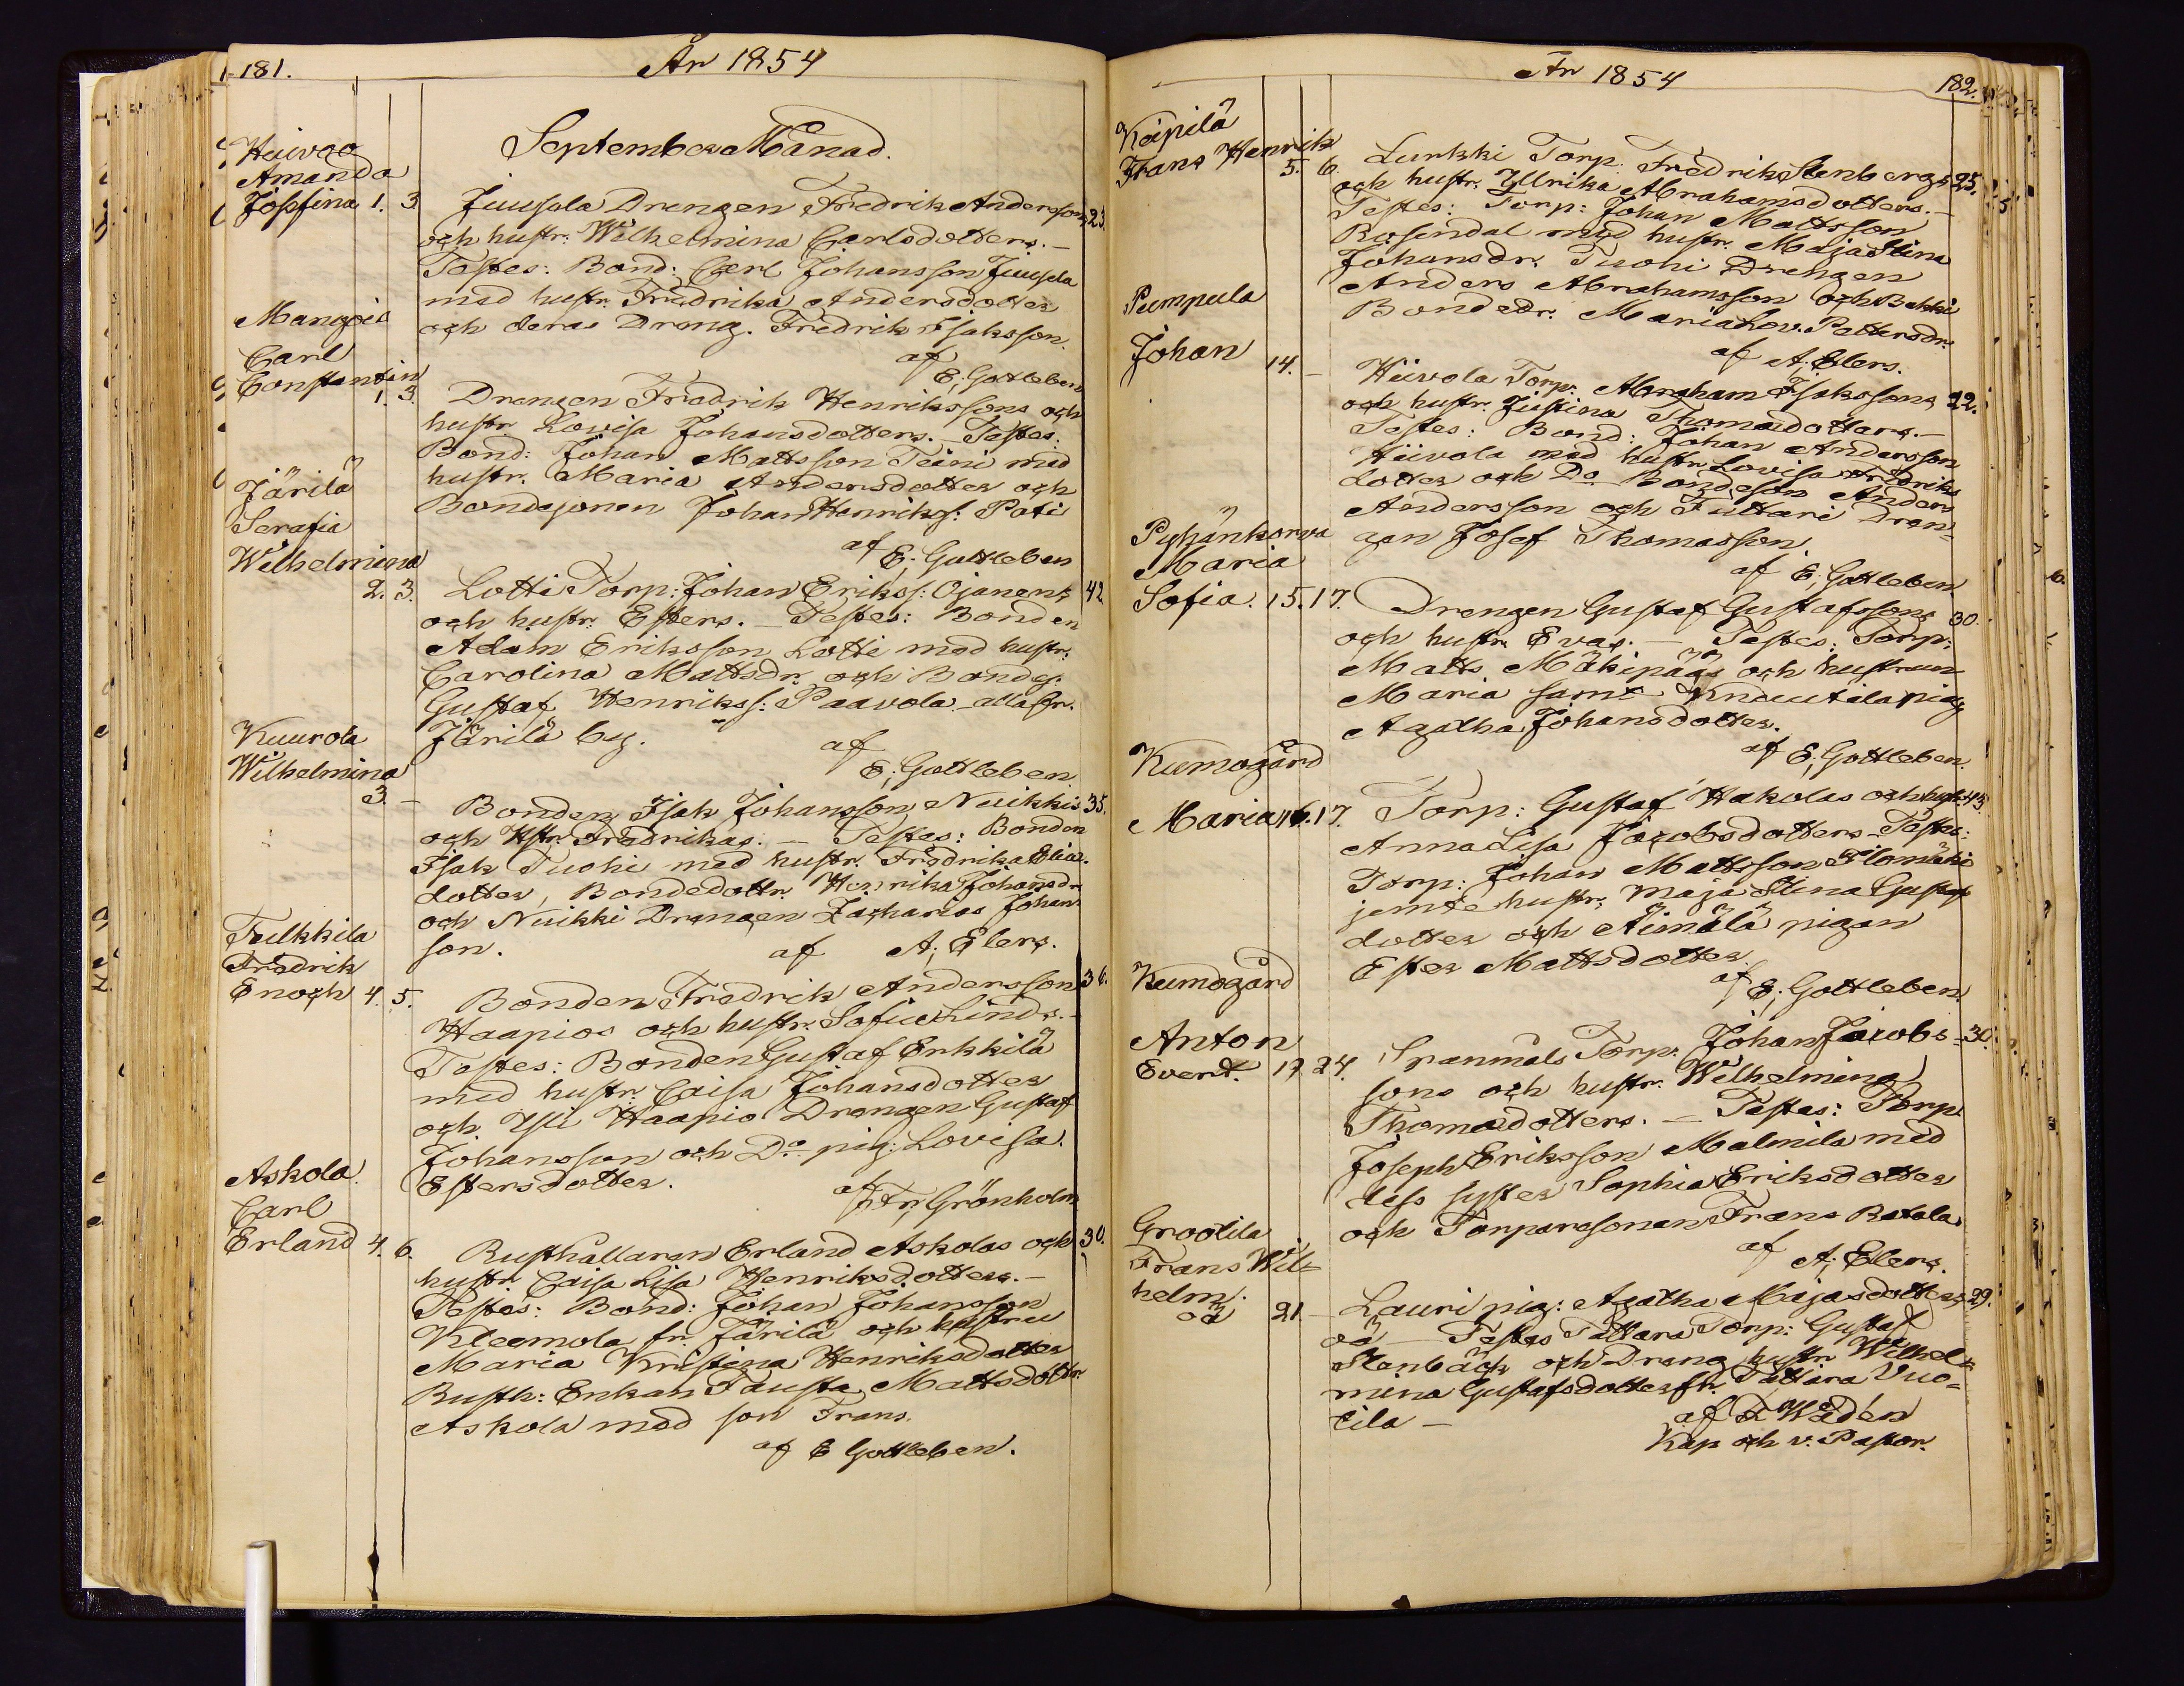 181.
År 1854
September Månad.
Huivoo
Amanda
Josefina 1. 3.
Juusela Drengen Fredrik Anderssons 23.
och hustr. Wilhelmina Carlsdotters.—
Testes: Bond: Carl Johansson Juusela
med hustr. Fredrika Andersdotter
och deras Dreng. Fredrik Isaksson.
af
E; Gottleben
Carl
Constantin
1. 3.
Drengen Fredrik Henrikssons och
hustr Lovisa Johansdotters.— Testes:
Bond: Johan Mattsson Teini med
hustr. Maria Andersdotter och
Bondesonen Johan Henrikss: Pati
af E; Gottleben
Järilä
Serafia
Wilhelmina
2. 3.
Lotti Torp: Johan Erikss: Ojanens 42
och hustr. Esters.— Testes: Bonden
Adam Eriksson Lotti med hustr:
Carolina Mattsdr. och Bondes.
Gustaf Henrikss: Paavola alla fr.
Järilä by.
af
E; Gottleben
Kuurola
Wilhelmina
3. —
Bonden Isak Johansson Nuikkis 35.
och Hstr. Fredrikas.— Testes: Bonden
Isak Tuohi med hustr. Fredrika Elias-
dotter, Bondedottr. Henrika Johansdr
och Nuikki Drengen Zacharias Johans
son.
af A; Elers.
Fulkkila
Fredrik
Enoch 4. 5.
Bonden Fredrik Andersson 36.
Haapios och hustr. Sofia Linds.—
Testes: Bonden Gustaf Erkkilä
med hustr. Caisa Johansdotter
och Yli Haapio Drengen Gustaf
Johansson och Do pig: Lovisa
Estersdotter.
af
Fr; Grönholm
Askola.
Carl
Erland 4. 6.
Rusthållaren Erland Askolas och 30.
hustr Caisa Lisa Henriksdotters.—
Testes: Bond: Johan Johansson
Kleemola fr. Järilä och hustru
Maria Kristina Henriksdotter
Rusth: Enkan Fausta Mattsdottr.
Askola med son Frans.
af E Gottleben.
År 1854
182.
Käpilä
Frans Henrik
5. 6.
Lurkki Torp: Fredrik Stenbergs 25.
och hustr. Ullrika Abrahamsdotters.—
Testes: Torp: Johan Mattsson
Rosendal med hustr. Maja Stina
Johansdr. Tuohi Drengen
Anders Abrahamsson och
Bondedr. Maria Lov. Pettersdr.
af A; Elers.
Pumpula
Johan 14. —
Hiivola Torp: Abraham Isakssons 22.
och hustr. Justina Thomasdotters.—
Testes: Bond: Johan Andersson
Hiivola med hustr Lovisa Fredriks
dotter och Do Bondeson Anders
Andersson och Futtari Dren-
gen Josef Thomasson.
af E; Gottleben
Pyhänkorva
Maria
Sofia. 15. 17.
Drengen Gustaf Gustafssons 30.
och hustr Evas.— Testes: Torp:
Matts Mäkipää och hustrun
Maria samt Knuutila pig
Agatha Johansdotter.
af E; Gottleben.
Kumogård
Maria 16. 17.
Torp: Gustaf Hakolas och hust. 43.
Anna Lisa Jacobsdotters—Testes:
Torp: Johan Mattsson Ilomäki
jemte hustr. Maja Stina Gustafs
dotter och Äimälä pigan
Ester Mattsdotter
af E; Gottleben.
Kumogård
Anton
Evert. 19. 24.
Sranmäls Torp. Johan Jacobs- 30.
sons och hustr. Wilhelmina
Thomasdotters.— Testes: Torp:
Joseph Eriksson Malmila med
dess syster Sophia Eriksdotter
och Torparesonen Frans Ratala
af
A; Elers.
Groolila
Frans Wil-
helm
oä 21.
Lauri pig: Agatha Majasdotters 29.
oä— Testes Tattara Torp: Gustaf
Stenbäck och Dreng hustr Wilhel-
mina Gustafsdotter fr. Tattara Vuo-
lila —
af F Wáden
Kap och v. Pastor.